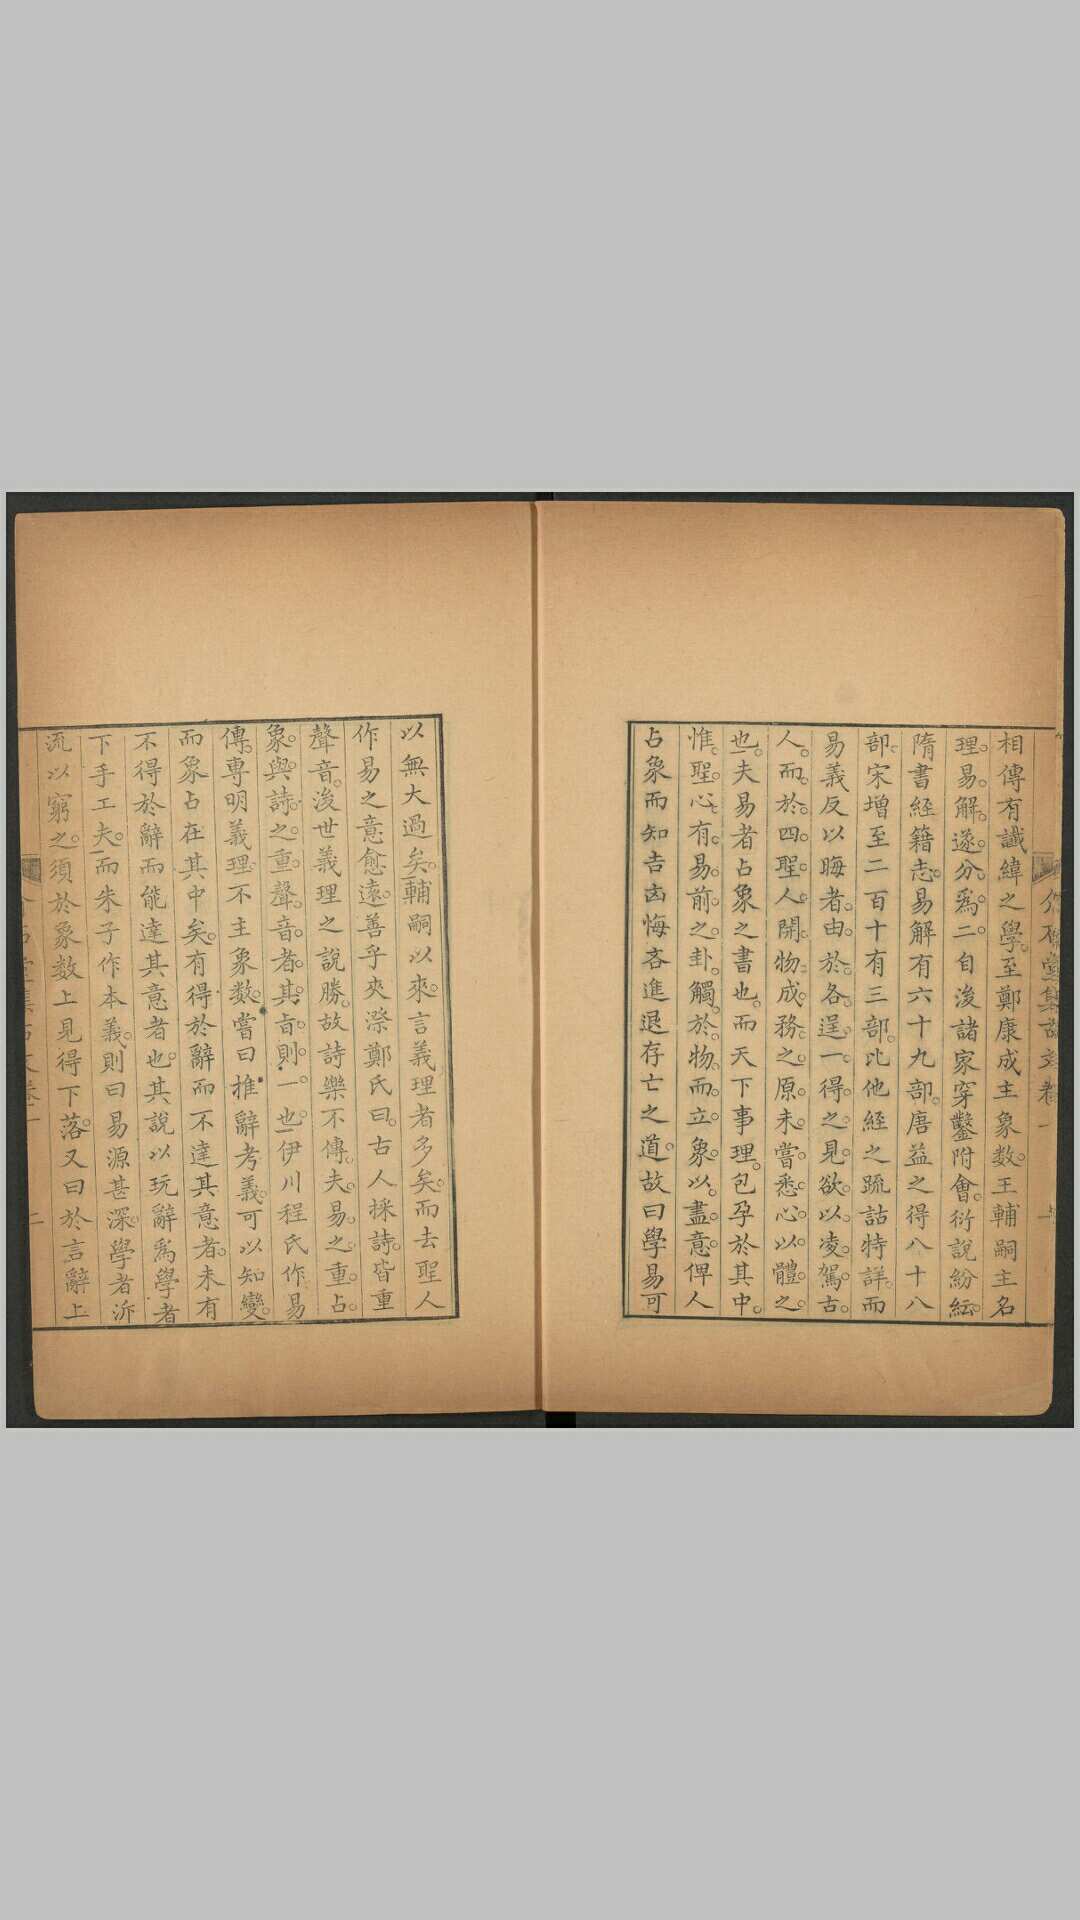 相傳有讖緯之學至鄭康成主象数王輔嗣主名
理易解遂分爲二自後諸家穿鑿附會衍說紛紜
隋書経籍志易解有六十九部唐益之得八十八
部宋增至二百十有三部比他経之䟽詁特詳而
易義反以晦者由於各逞一得之見欲以凌駕古
人而於四聖人開物成務之原未嘗悉心以體之
也夫易者占象之書也而天下事理包孕於其中
惟聖心有易前之卦觸於物而立象以盡意俾人
占象而知吉凶悔吝進退存亡之道故曰學易可
以無大過矣輔嗣以來言義理者多矣而去聖人
作易之意愈遠善乎夾漈鄭氏曰古人採詩皆重
聲音後世義理之說勝故詩樂不傳夫易之重占
象與詩之重聲音者其旨則一也伊川程氏作易
傳專明義理不主象数嘗曰推辭考義可以知變
而象占在其中矣有得於辭而不達其意者未有
不得於辭而能達其意者也其說以玩辭爲學者
下手工夫而朱子作本義則曰易源甚深學者泝
流以窮之須於象数上見得下落又曰於言辭上